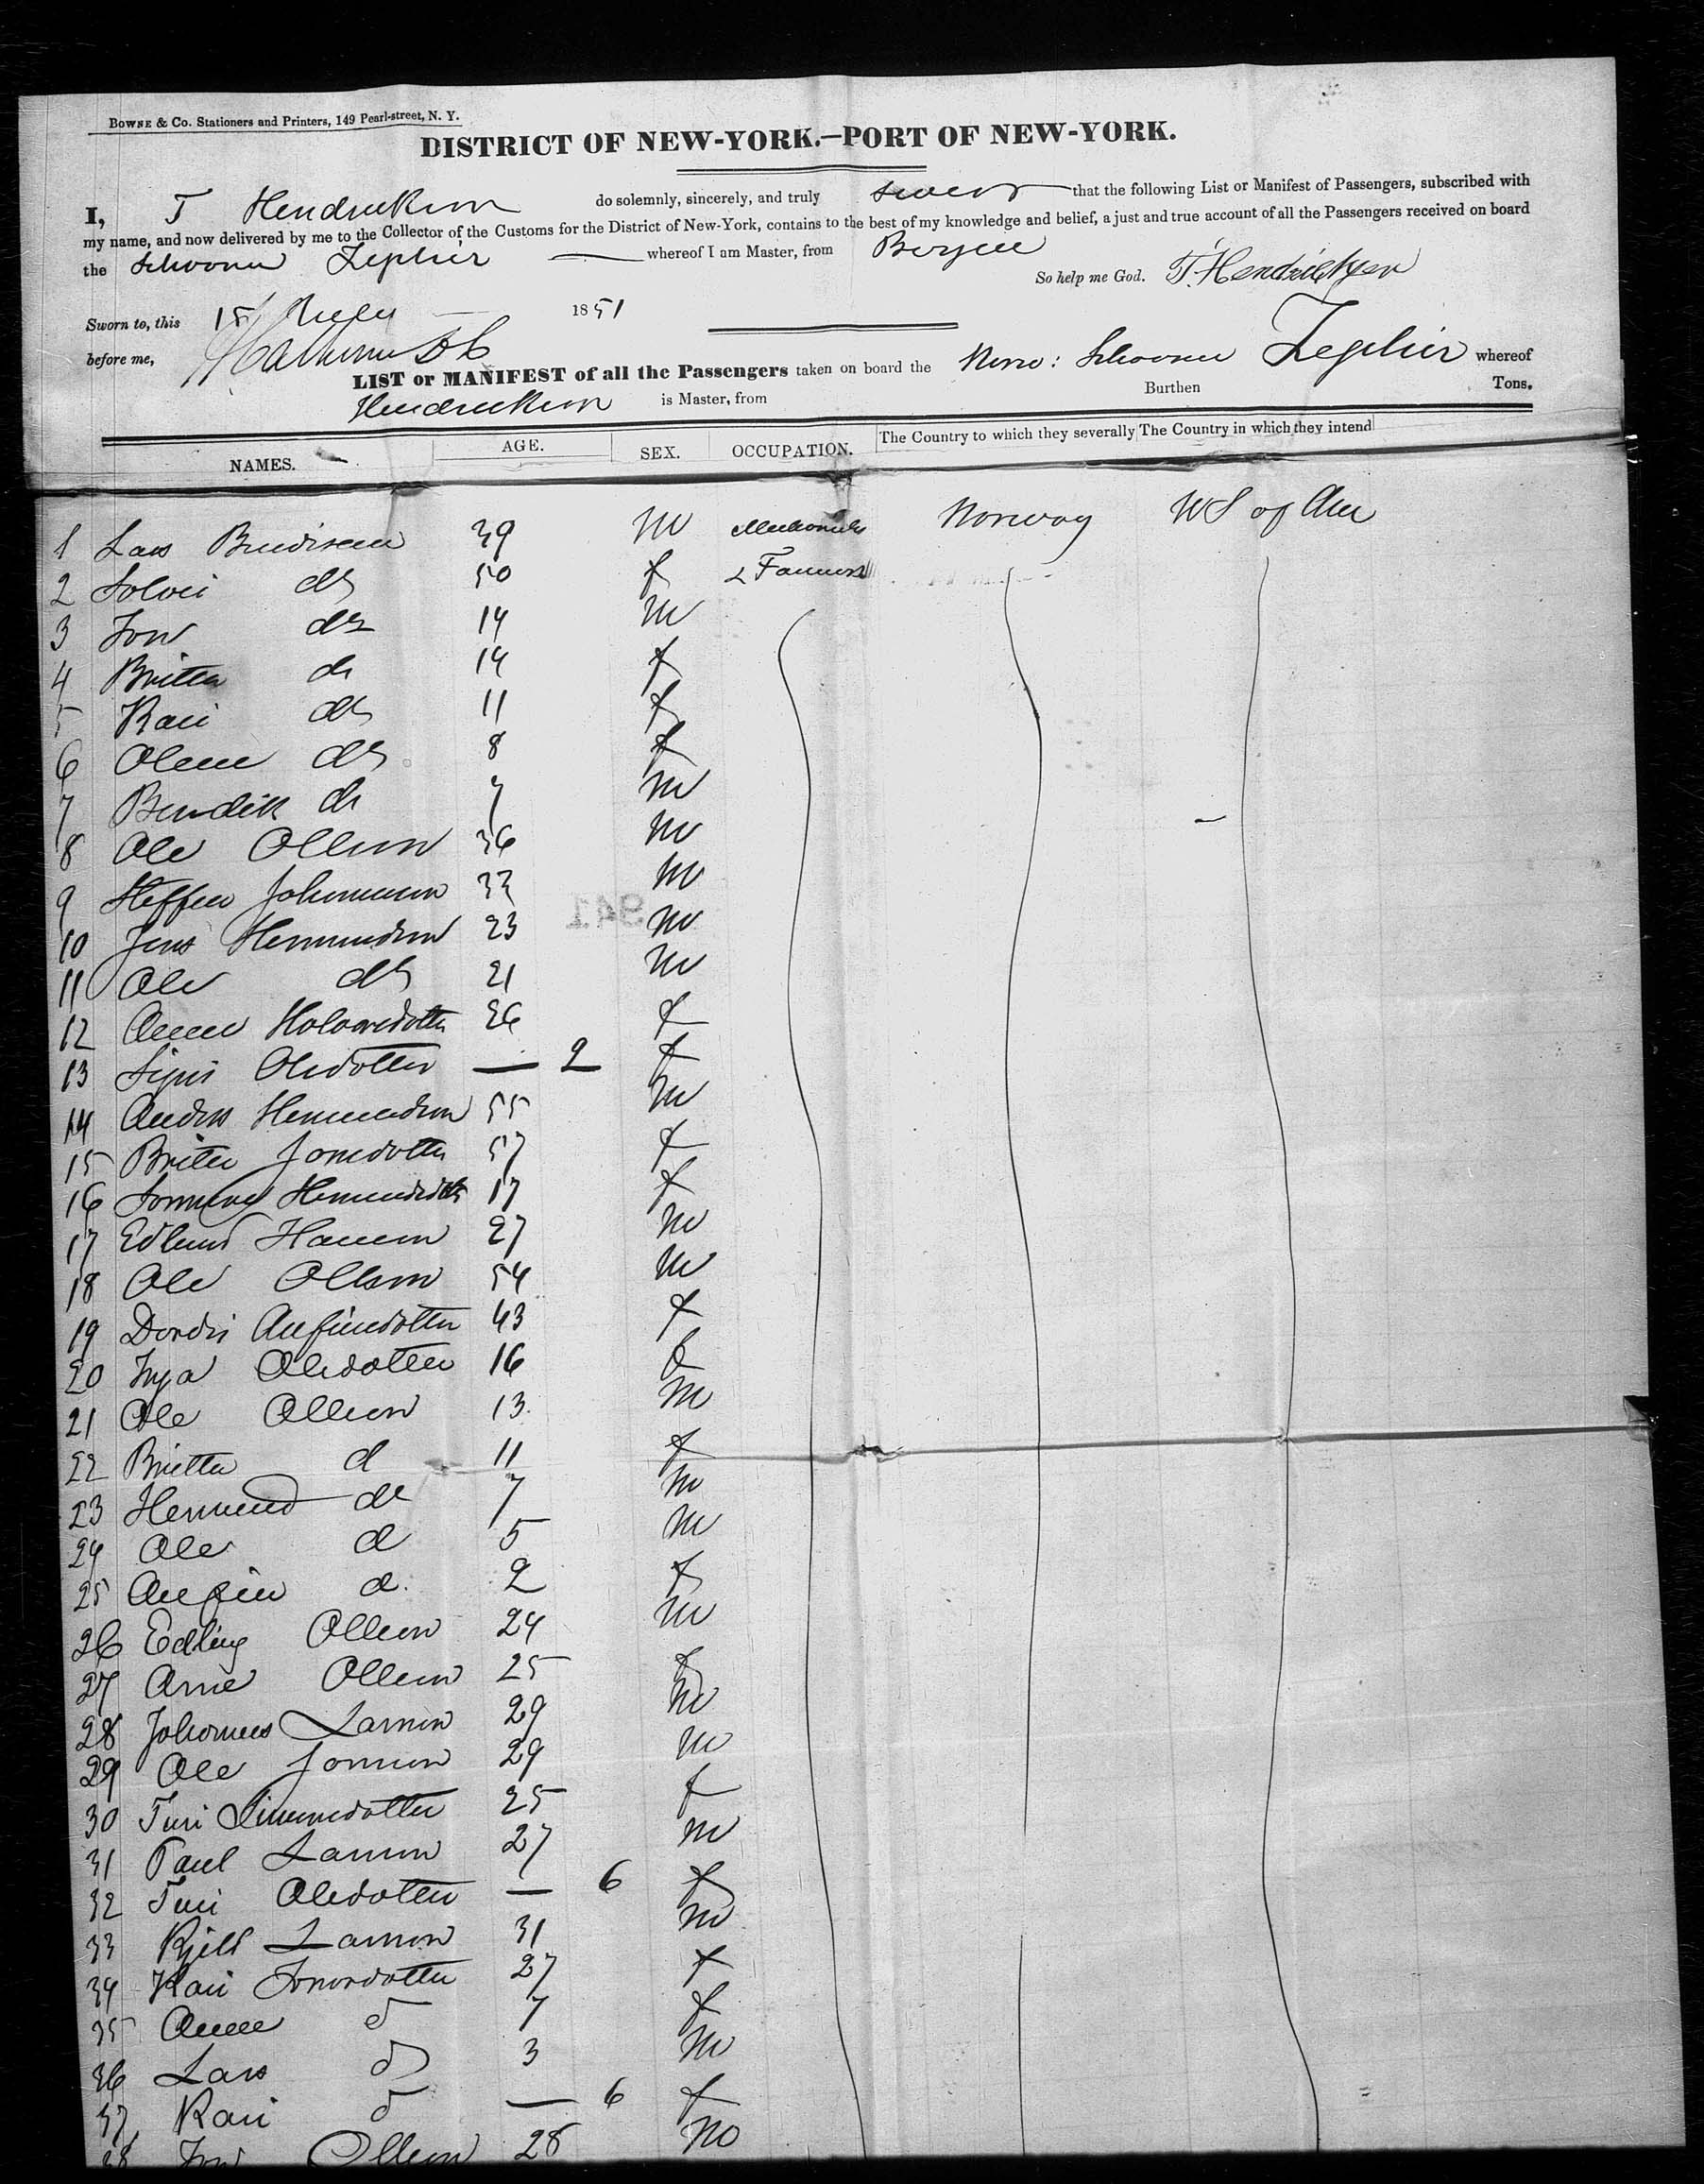 BOWNE & Co. Stationers and Printers, 149 Pearl-street, N. Y.
DISTRICT OF NEW-YORK.—PORT OF NEW-YORK.
I, T Hendrickson do solemnly, sincerely, and truly swear that the following List or Manifest of Passengers, subscribed with
my name, and now delivered by me to the Collector of the Customs for the District of New-York, contains to the best of my knowledge and belief, a just and true account of all the Passengers received on board
the Schooner Zephir whereof I am Master, from Bergen
So help me God. T. Hendricksen
Sworn to, this 15 1851
before me,
LIST or MANIFEST of all the Passengers taken on board the Schooner Zephir whereof
Hendrickson is Master, from Burthen Tons.
NAMES. AGE. SEX. OCCUPATION. The Country to which they severally The Country in which they intend
1 Lars 39 m Norway US of Am
2 Solvi do 50 f & Farmers
3 Jon do 14 m
4 Britta do 14 f
5 Kari do 11 f
6 do 8 f
7 Bendik do 7 m
8 Ole Olleson 36 m
9 Steffen Johanneson 33 m
10 Jens Hermundson 23 m
11 Ole do 21 m
12 Anne 26 f
13 Oledotter — 2 f
14 Anders Hermundson 55 m
15 Britte Jonsdotter 57 f
16 17 f
17 Hanson 27 m
18 Ole Olleson 54 m
19 Dordi Anfindotter 43 f
20 Inga Oledotter 16 f
21 Ole Olleson 13 m
22 Britta d 11 f
23 Hermund do 7 m
24 Ole d 5 m
25 Anfin d. 2 f
26 Edling Olleson 24 m
27 Arne Olleson 25 f
28 Johannes Larson 29 m
29 Ole Jonson 29 m
30 Turi 25 f
31 Paul Larson 27 m
32 Turi Oledotter — 6 f
33 Kjell Larson 31 m
34 Kari 27 f
35 Anne d 7 f
36 Lars d 3 m
37 Kari d — 6 f
38 Jon Olleson 28 m